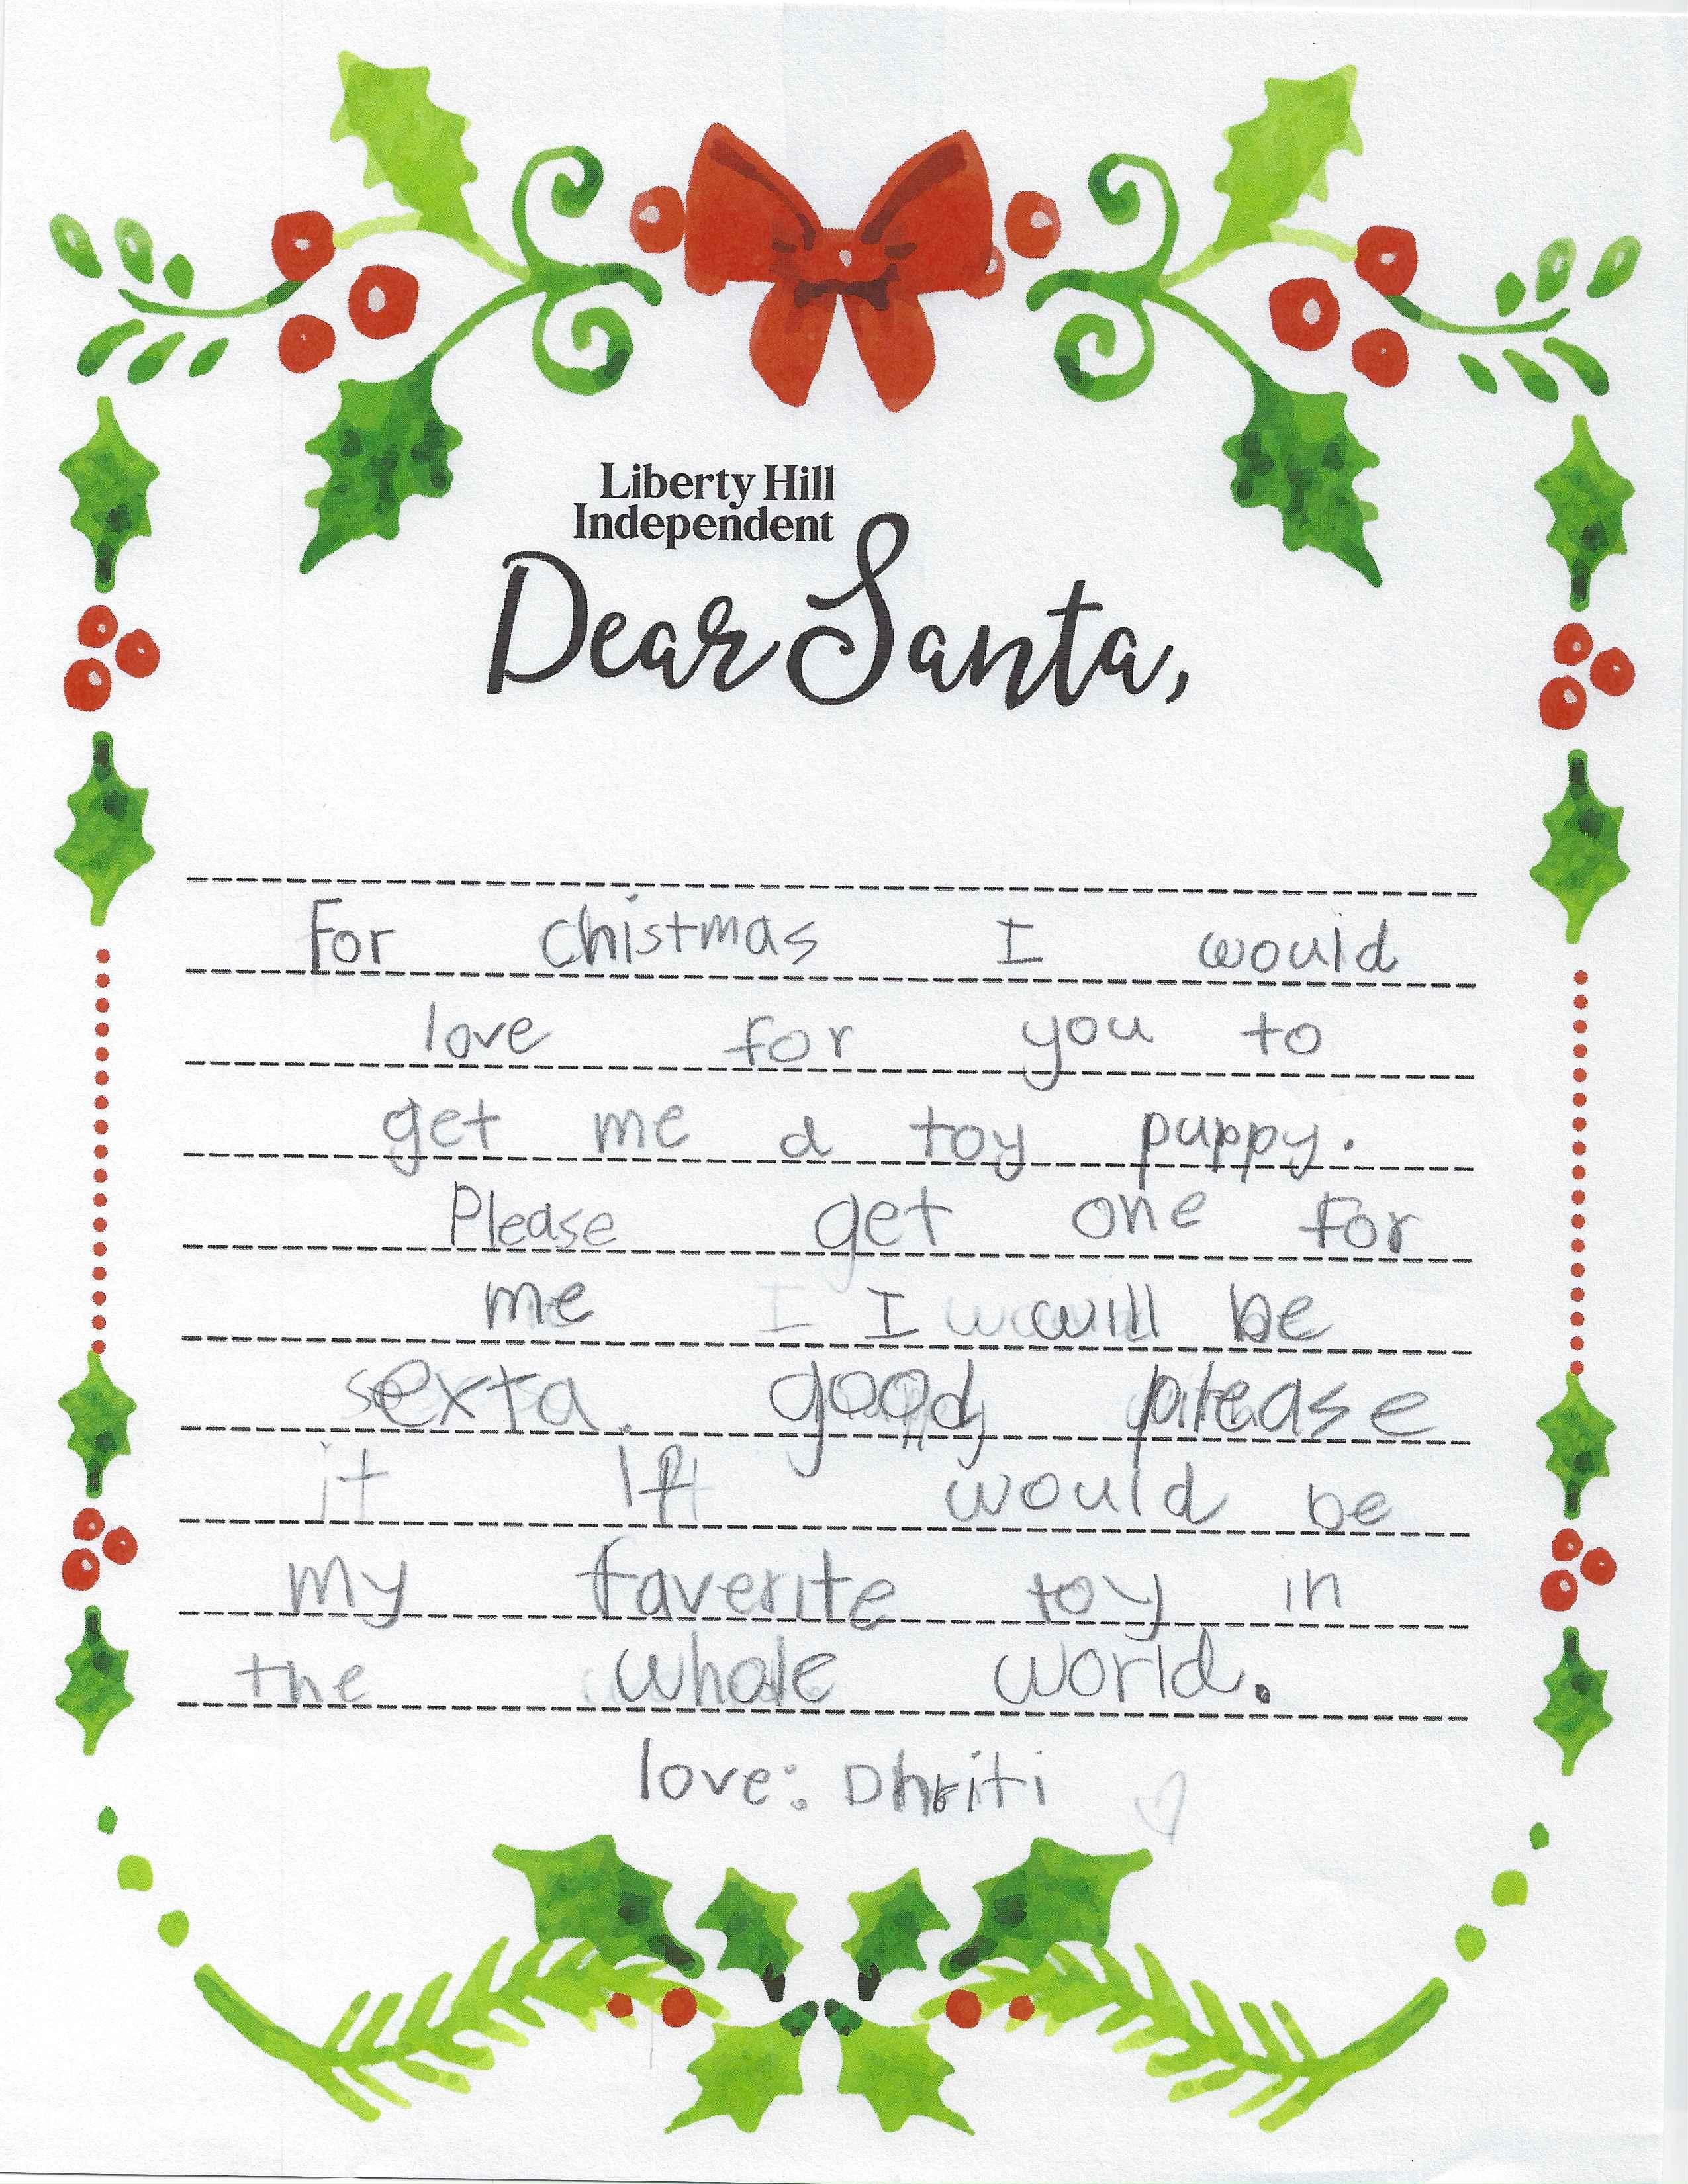 Liberty Hill
Independent
Dear Santa,
For chistmas I would
love for you to
get me a toy puppy.
Please get one for
me I will be
sexta good please
it If would be
my faverite toy in
the whole world.
love: Dhriti